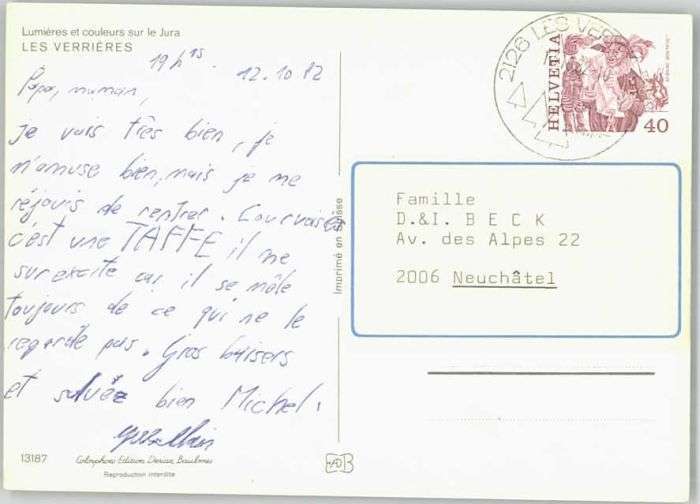 Lumières et couleurs sur le Jura
LES VERRIÈRES
19 h 15 . 12.10 82
Papa, maman,
Je vais très bien, je
m'amuse bien, mais je me
réjouis de rentrer.
c'est une TAFFE il me
surexcite car il se mêle
toujours de ce qui ne le
regarde pas. Gros baisers
et bien Michel.
13187
Reproduction interdite
Imprimé en Suisse
2126 LES VERRIÈRES
HELVETIA
40
Famille
D.&I. BECK
Av. des Alpes 22
2006 Neuchâtel